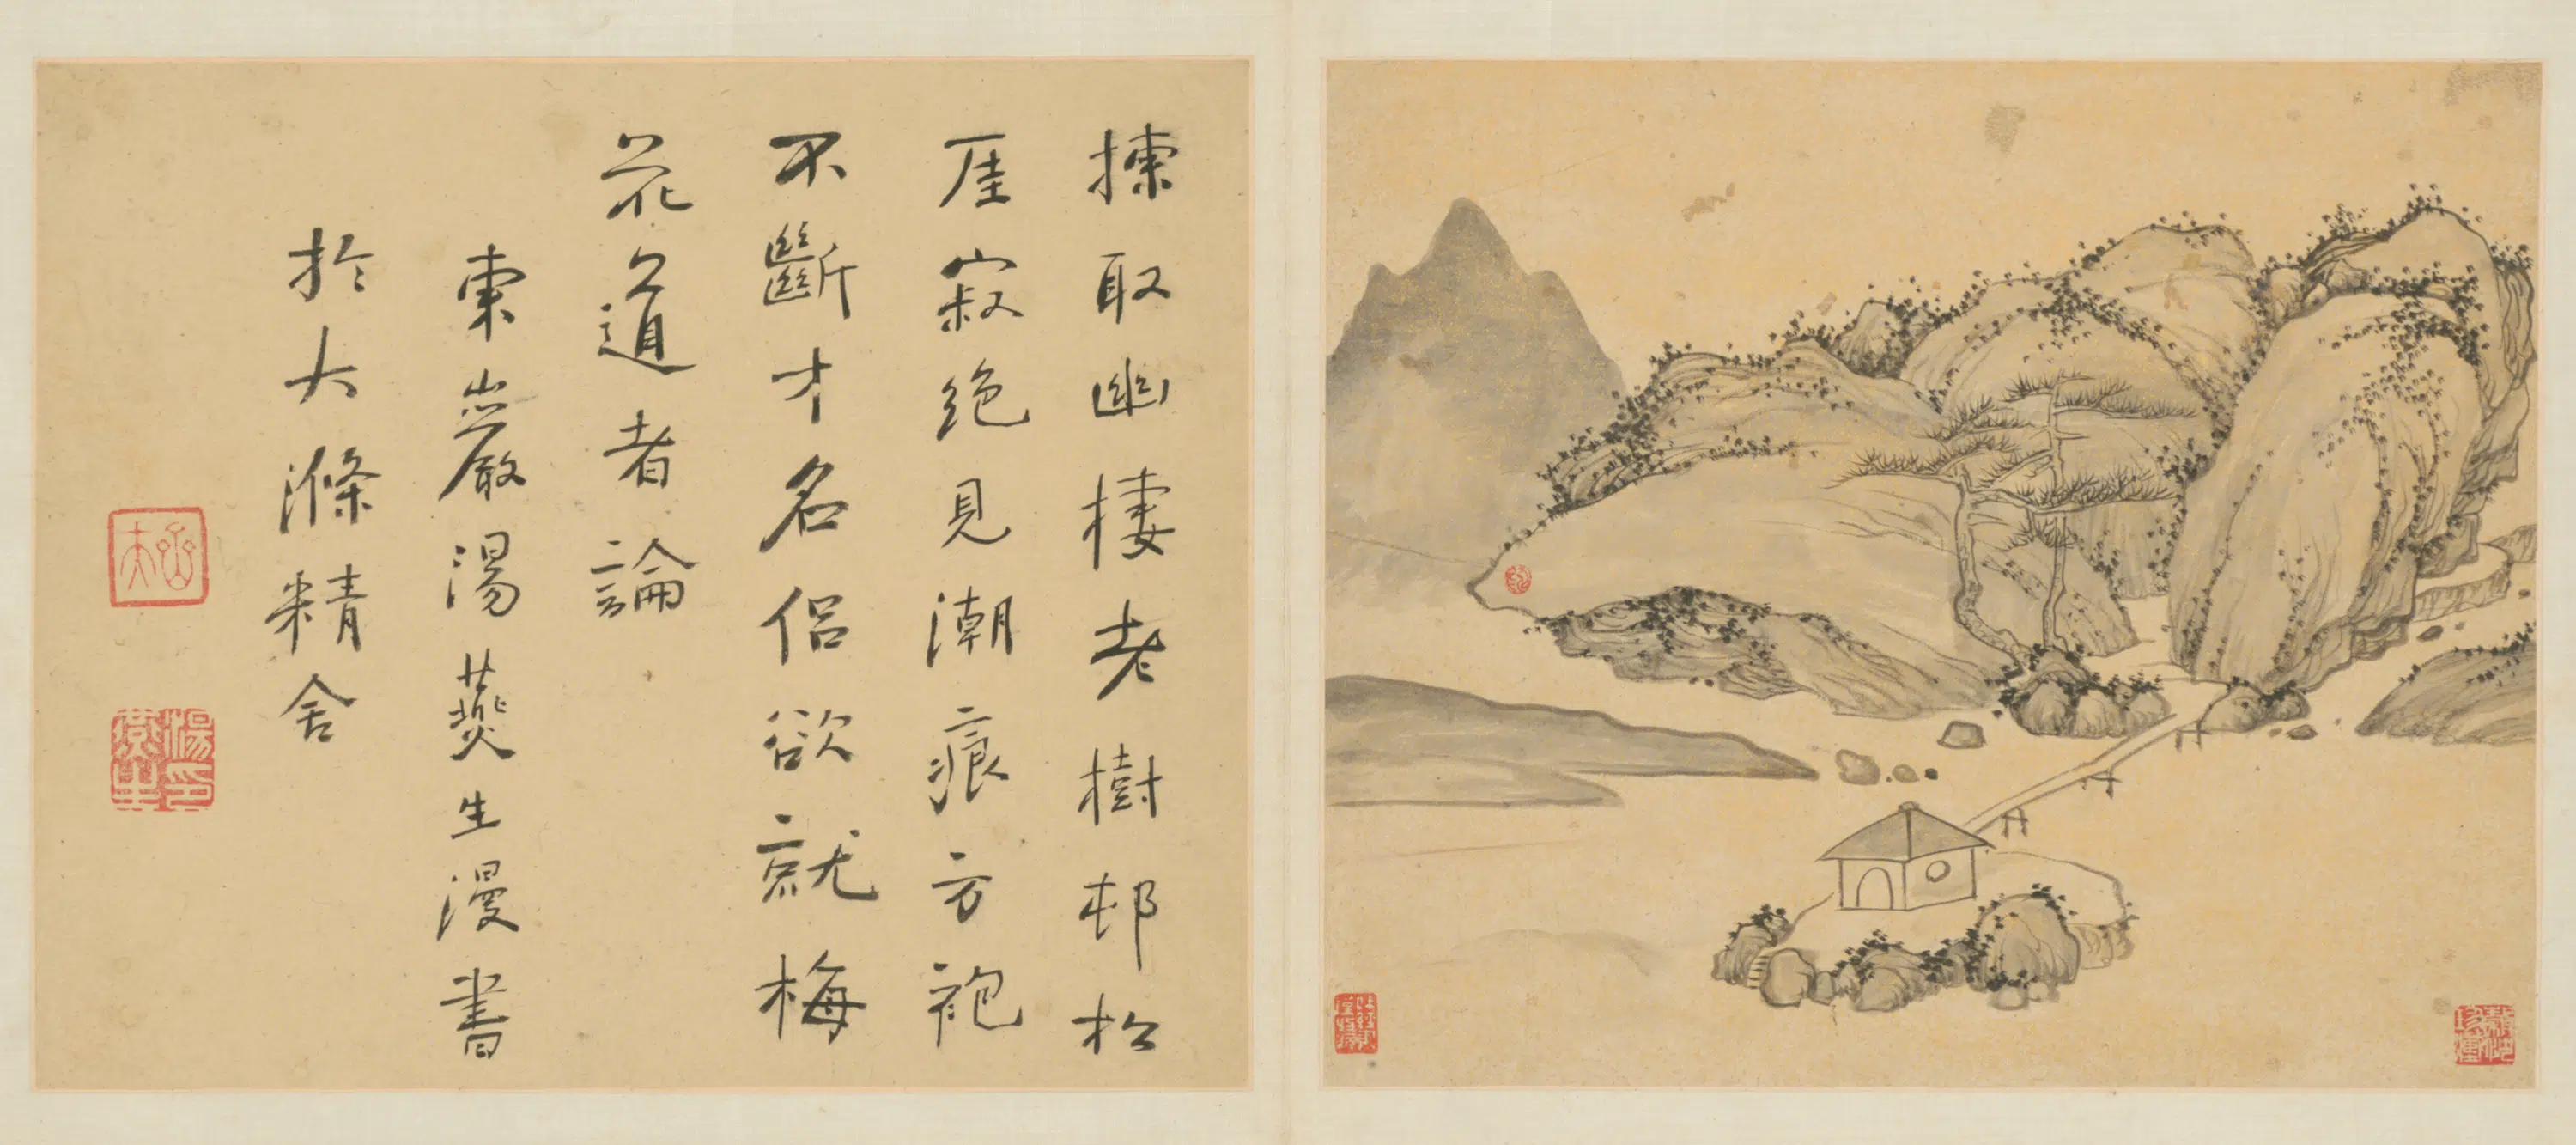 揀取幽棲老樹邨松
厓寂絶見潮痕方袍
不斷才名侣欲就梅
花道者論
東巖湯燕生漫書
於大滌精舍